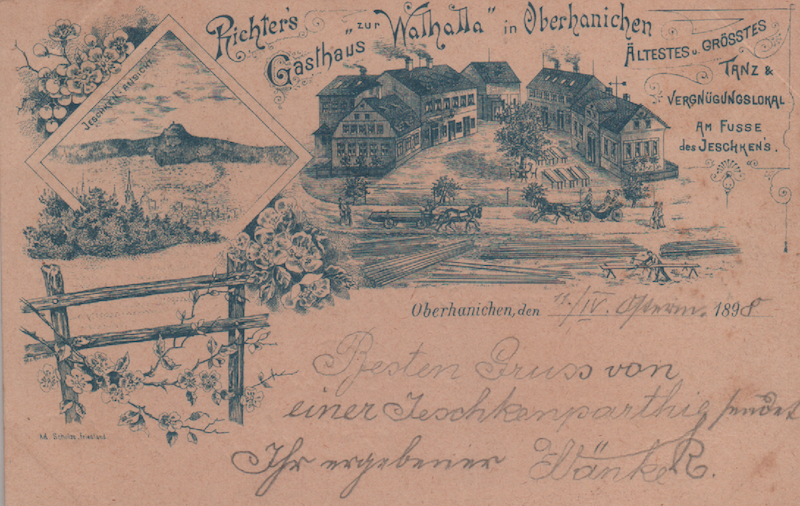 Richter's
Gasthaus "zur Walhalla" in Oberhanichen
ÄLTESTES u. GRÖSSTES
TANZ &
VERGNÜGUNGSLOKAL
AM FUSSE
des JESCHKEN'S.
JESCHKEN AUSICHT
Oberhanichen, den 11/IV. Osterm. 1898
Besten Gruss von
einer Jeschkenparthig sendet
Ihr ergebener Wänke R.